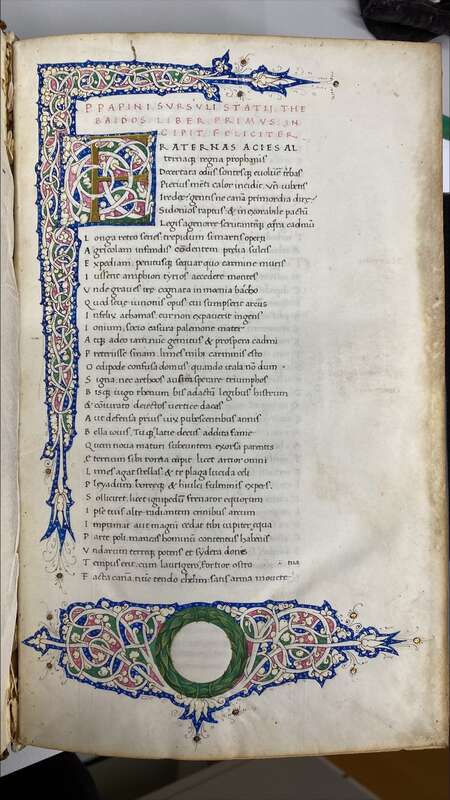 P. PAPINI. SVRSVLI. STATII. THE
BAIDOS. LIBER. PRIMVS. IN
CIPIT. FOELICITER.
FRATERNAS ACIES AL
ternaque regna prophanis
Decertata odiis sontesque evoluere thebas
Pierius menti calor incidit. Vnde iubetis
Ire deae. gentis ne canam primordia dirae
Sidonios raptus & inexorabile pactum
Legis agenoreae scrutantemque equora cadmum
Longa retro series trepidum si martis operti
Agricolam infandis condentem prelia sulcis
Expediam. penitusque sequar quo carmine muris
Iusserit amphion tyrios accedere montes
Vnde graves irae cognata in moenia baccho
Quod saevae iunonis opus. cui sumpserit arcus
Infelix athamas. cur non expaverit ingens
Ionium. socio casura palemone mater
Atque adeo iam nunc gemitus & prospera cadmi
Preteriisse sinam. limes mihi carminis esto
Oedipodae confusa domus. quando itala nondum
Signa. nec arctoos ausim sperare triumphos
Bisque iugo rhenum bis adactum legibus histrum
& coniurato deiectos vertice dacos
Aut defensa prius vix pubescentibus annis
Bella iovis. Tuque o latiae decus addita famae
Quem nova maturi subeuntem exorsa parentis
Eternum sibi roma cupit. licet artior omnis
Limes agat stellas & te plaga lucida celi
Pleyadum boreaeque & hiulci fulminis expers.
Sollicitet. licet ignipedum frenator equorum
Ipse tuis alte radiantem crinibus arcum
Imprimat aut magni cedat tibi iupiter equa
Parte poli. maneas hominum contentus habenis
Vndarum terraeque potens et sydera dones
Tempus erit. cum laurigero. fortior oestro
tua
Facta canam. nunc tendo chelim. satis arma movere